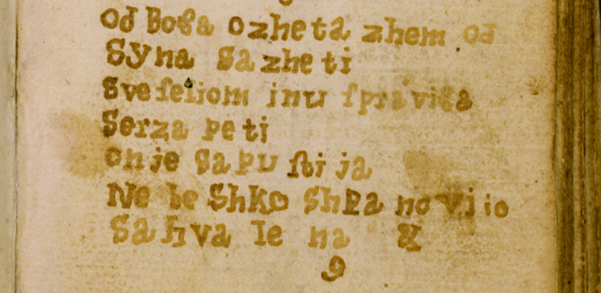 od Boga ozheta zhem od
Syna Sazheti
Sveseliom inu spraviga
Serza peti
on je Sapustija
Nebeshko Shpanovijo
Sahvalena &
9